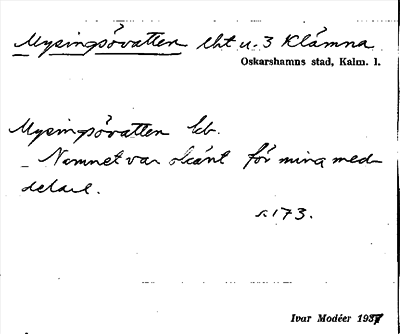 Mysingsövatten lht u. 3 Klämna
Oskarshamns stad, Kalm. l.
Mysingsövatten kb.
– Namnet var okänt för mina med-
delare.
s. 173.
Ivar Modéer 1937